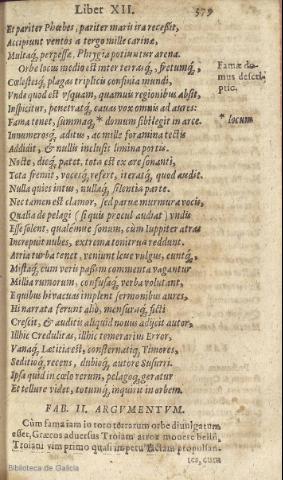 Liber XII. 379
Et pariter Phœbes, pariter maris ira recessit,
Accipiunt ventos a tergo mille carinæ,
Multaq, perpessæ Phrygia potiuntur arena.
Orbe locus medio est inter terrasq, fretumq,
Cœlestesq, plagas triplicis confinia mundi,
Vnde quod est vsquam, quamuis regionibus absit,
Inspicitur, penetratq, cauas vox omnis ad aures:
Fama tenet, summaq, * domum sibi legit in arce.
Innumerosq, aditus, ac mille foramina tectis
Addidit, & nullis inclusit limina portis.
Nocte, dieq, patet. tota est ex ære sonanti,
Tota fremit, vocesq, refert, iteratq, quod audit.
Nulla quies intus, nullaq, silentia parte.
Nec tamen est clamor, sed paruæ murmura vocis,
Qualia de pelagi (si quis procul audiat) vndis
Esse solent, qualemue sonum, cùm Iuppiter atras
Increpuit nubes, extrema tonitrua reddunt.
Atria turba tenet, veniunt leue vulgus, euntq,
Mistaq, cum veris passim commenta vagantur
Millia rumorum, confusaq, verba volutant,
E quibus hi vacuas implent sermonibus aures,
Hi narrata ferunt aliò, mensuraq, ficti
Crescit, & auditis aliquid nouus adijcit autor,
Illhic Credulitas, illhic temerarius Error,
Vanaq, Lætitia est, consternatiq, Timores,
Seditioq, recens, dubioq, autore Susurri.
Ipsa quid in cœlo rerum, pelagoq, geratur
Et tellure videt, totumq, inquirit in orbem.
Famæ do-
mus descri-
ptio.
* locum
FAB. II. ARGVMENTVM.
Cùm fama iam in toto terrarum orbe diuulgatum
esset, Græcos aduersus Troiam arma mouere
Troiani vim primo quasi impetu factam propulsan-
tes, cum
Biblioteca de Galicia